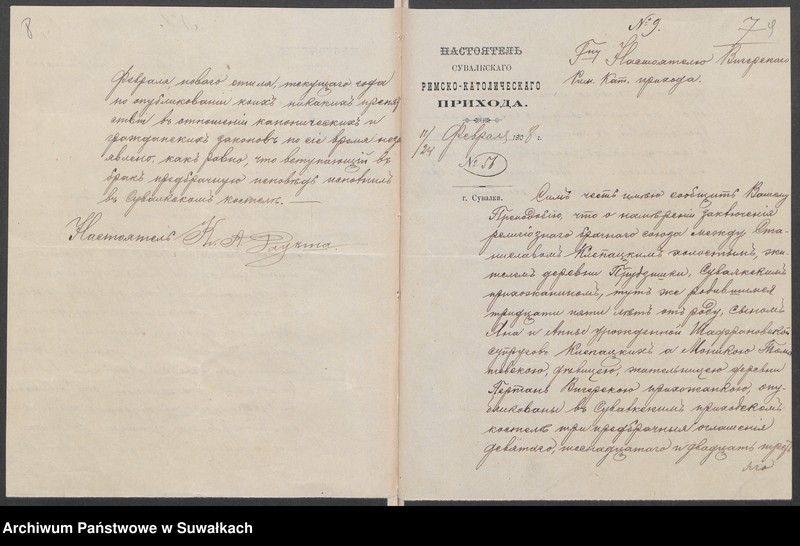 8
Февраля, новаго стиля, текущаго года
по опубликовании коихъ никакихъ препят
ствiй въ отношенiи каноническихъ и
гражданскихъ законовъ по сiе время не за
явлено, какъ равно, что вступающiй въ
бракъ предбрачную исповѣдь исполнилъ
въ Сувалкскомъ костелѣ.
Настоятель Кс. А.
№ 9.
7
НАСТОЯТЕЛЬ
СУВАЛКСКАГО
РИМСКО-КАТОЛИЧЕСКАГО
ПРИХОДА.
11/24 Февраля 1908 г.
№ 51
г. Сувалки.
Гну Настоятелю Вигерскаго
Рим. Кат. прихода.
Симъ честь имѣю сообщить Вашему
Преподобiю, что о намѣренiи заключенiя
религiознаго брачнаго союза между Ста-
ниславомъ Клепацкимъ холостымъ, жи-
телемъ деревни Сувалкскимъ
прихожаниномъ, тутъ же родившимся
тридцати пяти лѣтъ отъ роду, сыномъ
Яна и Анны урожденной
супруговъ Клепацкихъ а Моникою
дѣвицею, жительницею деревни
Пертань Вигерскою прихожанкою, опу-
бликованы въ Сувалкскомъ приходскомъ
костелѣ три предбрачныя оглашенiя
девятаго, шестнадцатаго и двадцать треть
яго
Archiwum Państwowe w Suwałkach